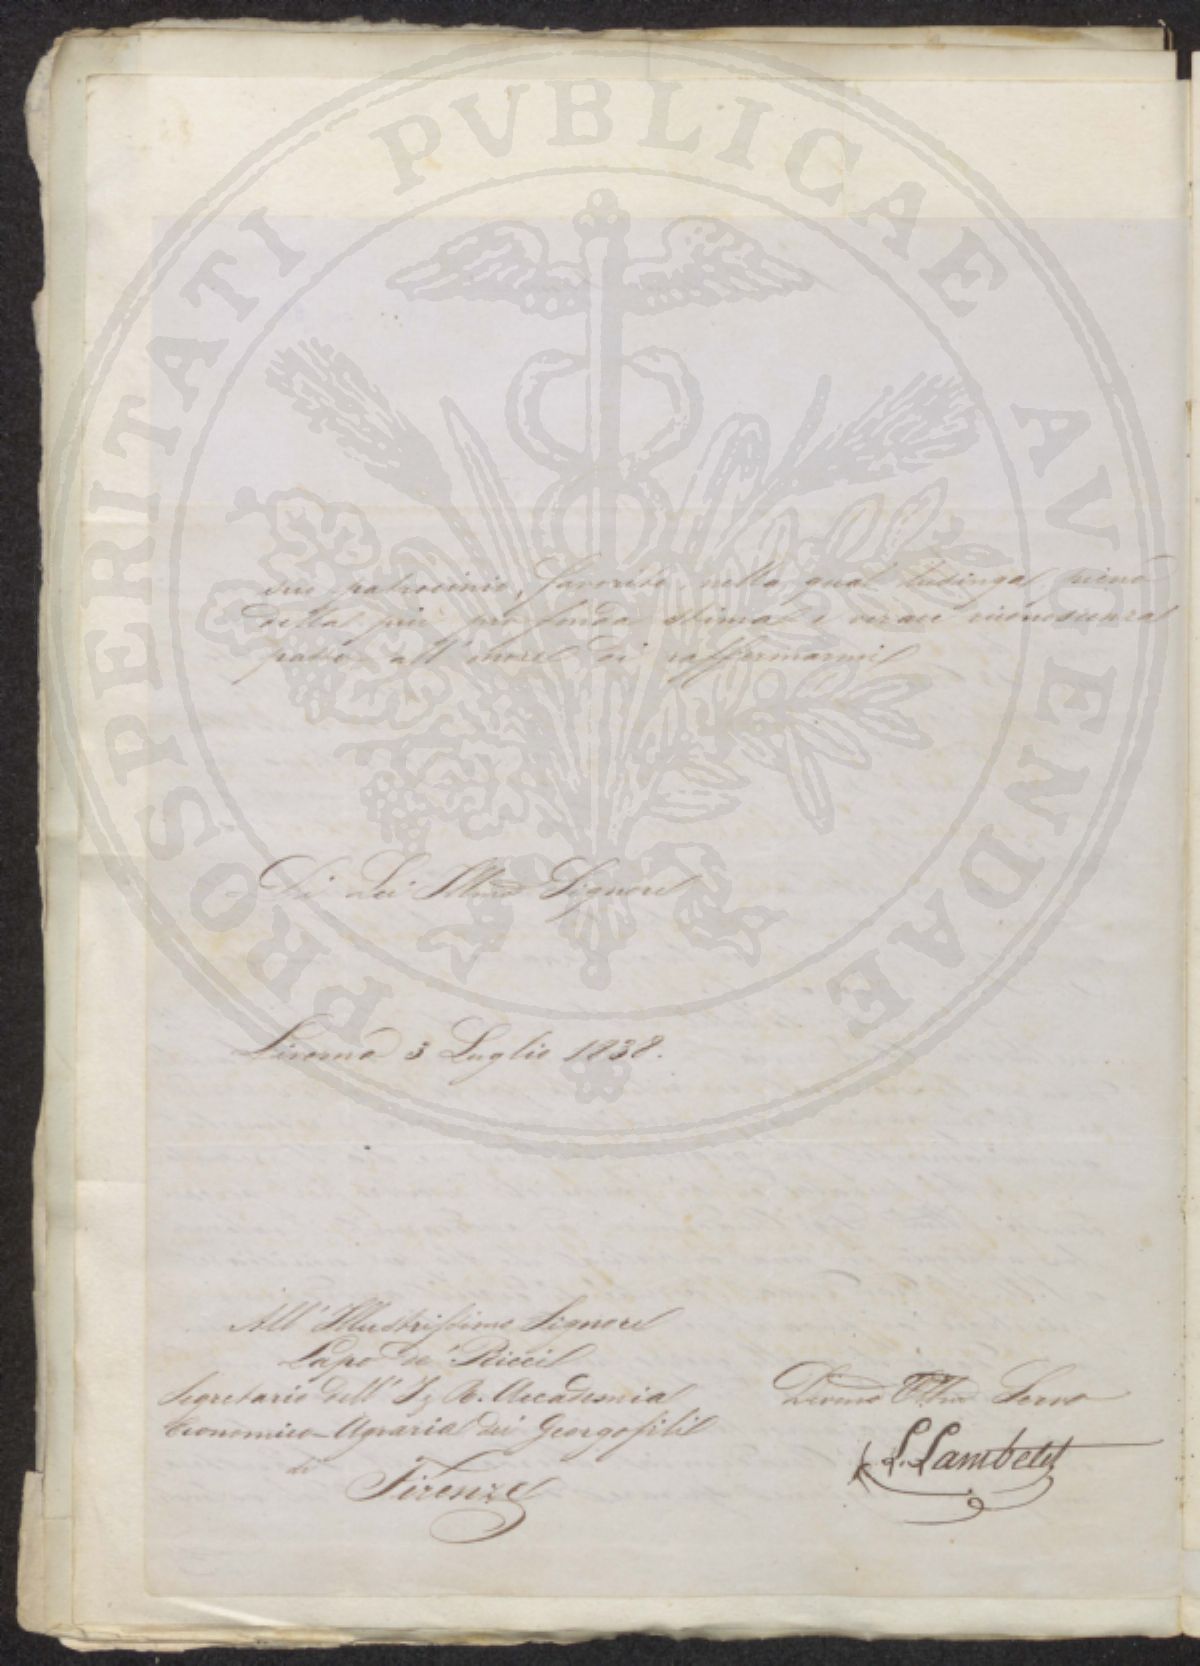 PROSPERITATI PVBLICAE AVGENDAE
suo patrocinio, favorito nella qual lusinga pieno
della più profonda stima e verace riconoscenza
passo all' onore di raffermarmi
Di Lei Illmo Signore
Livorno 3 Luglio 1838.
All' Illustrissimo Signore
Lapo de' Ricci
Segretario dell' I. R. Accademia
Economico-Agraria dei Georgofili
di
Firenze
Devmo Servo
L. Lambert